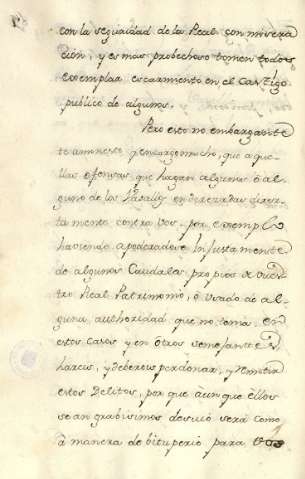 con la seguridad de la Real conmisera
cion, y es mas probechoso tomen todos
exemplar escarmiento en el Castigo
publico de algunos.
Pero esto no embargante
te amonesto y encargo mucho, que aque
llas ofensas que hagan algunos ó al
guno de los Vasallos enderezadas direc
tamente contra vos por exemplo
haviendo apoderadose Injustamente
de algunos Caudales propios de vues
tro Real Patrimonio, ó Usado de al
guna authoridad que no tenia, en
estos casos y en otros semejantes
hareis, y debereis perdonar, y remitir
estos Delitos, por que aunque ellos
sean grabisimos de suio será como
á manera de bituperio para